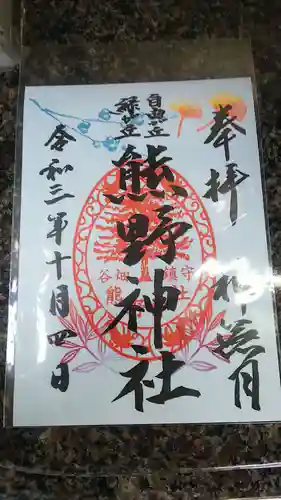 奉拝 神無月
自由丘
緑ヶ丘
熊野神社
谷畑 鎮守
熊 社
令和三年十月四日